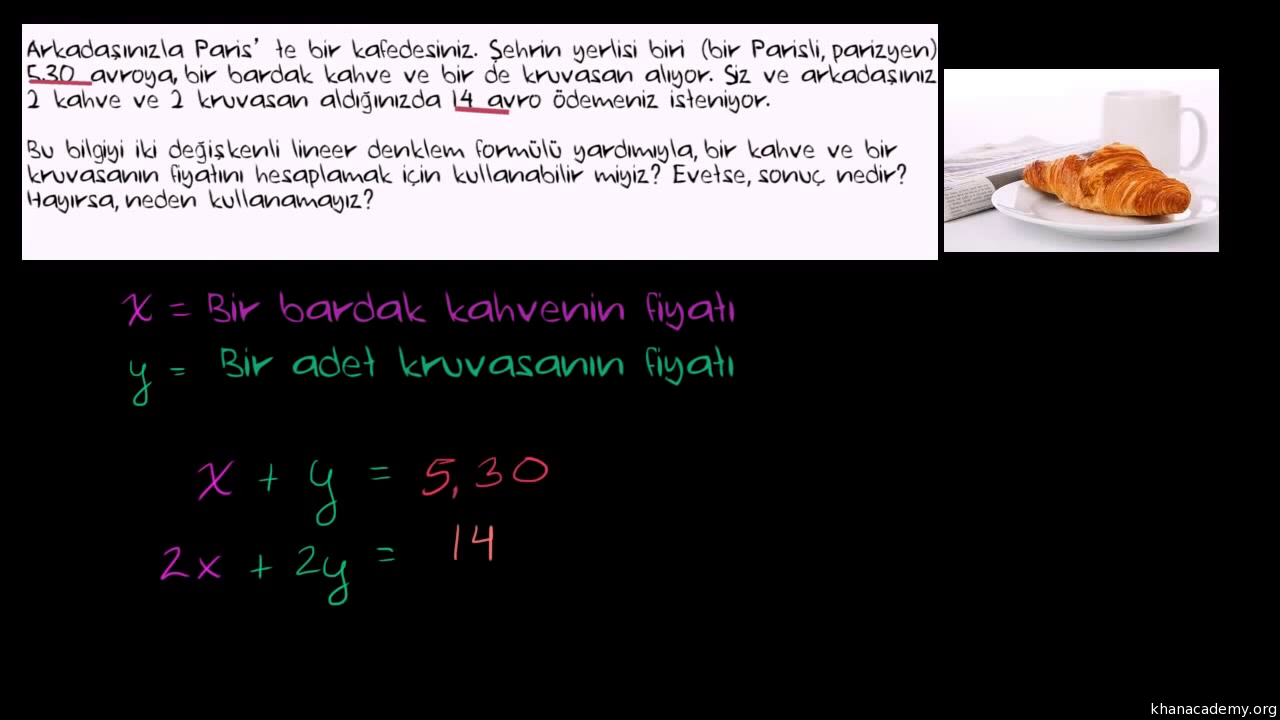 Arkadaşınızla Paris' te bir kafedesiniz. Şehrin yerlisi biri (bir Parisli, parizyen)
5.30 avroya, bir bardak kahve ve bir de kruvasan alıyor. Siz ve arkadaşınız
2 kahve ve 2 kruvasan aldığınızda 14 avro ödemeniz isteniyor.
Bu bilgiyi iki değişkenli lineer denklem formülü yardımıyla, bir kahve ve bir
kruvasanın fiyatını hesaplamak için kullanabilir miyiz? Evetse, sonuç nedir?
Hayırsa, neden kullanamayız?
x = Bir bardak kahvenin fiyatı
y = Bir adet kruvasanın fiyatı
x + y = 5,30
2x + 2y = 14
khanacademy.org